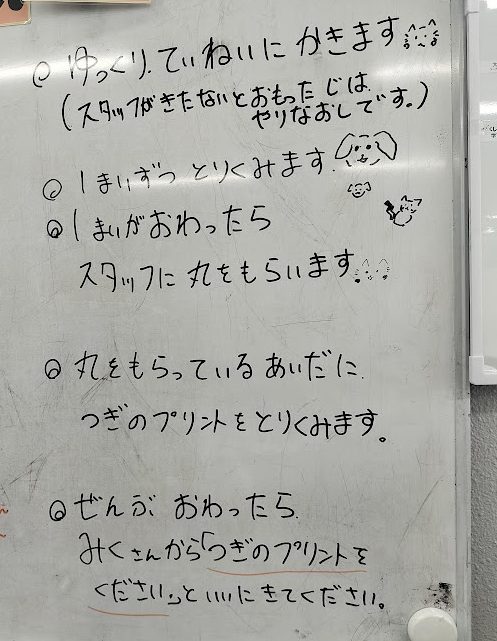 ◎ ゆっくり、ていねいに かきます
(スタッフがきたないとおもったじは、
やりなおしです。)
◎ 1まいずつ とりくみます。
◎ 1まいがおわったら
スタッフに丸をもらいます
◎ 丸をもらっているあいだに、
つぎのプリントをとりくみます。
◎ ぜんぶ おわったら、
みくさんから「つぎのプリントを
ください。」といいにきてください。